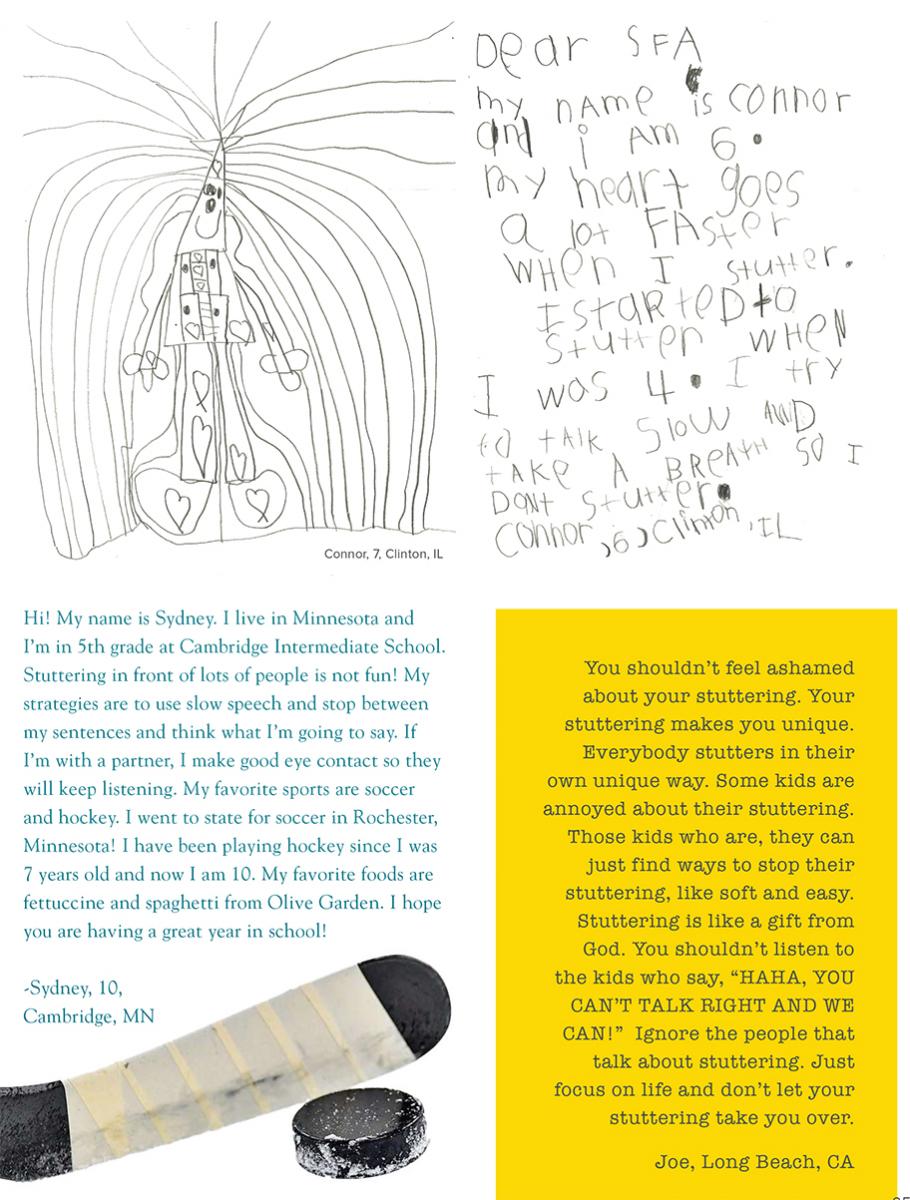 Dear SFA
my name is connor
and i AM 6.
my heart goes
a lot FAster
WHen I stutter.
I staRteD to
Stutter WHeN
I was 4. I try
to tAlk Slow AND
tAKe A BReAtH so I
Dont stutter.
Connor, 6, Clinton, IL
Connor, 7, Clinton, IL
Hi! My name is Sydney. I live in Minnesota and
I'm in 5th grade at Cambridge Intermediate School.
Stuttering in front of lots of people is not fun! My
strategies are to use slow speech and stop between
my sentences and think what I'm going to say. If
I'm with a partner, I make good eye contact so they
will keep listening. My favorite sports are soccer
and hockey. I went to state for soccer in Rochester,
Minnesota! I have been playing hockey since I was
7 years old and now I am 10. My favorite foods are
fettuccine and spaghetti from Olive Garden. I hope
you are having a great year in school!
-Sydney, 10,
Cambridge, MN
You shouldn't feel ashamed
about your stuttering. Your
stuttering makes you unique.
Everybody stutters in their
own unique way. Some kids are
annoyed about their stuttering.
Those kids who are, they can
just find ways to stop their
stuttering, like soft and easy.
Stuttering is like a gift from
God. You shouldn't listen to
the kids who say, “HAHA, YOU
CAN'T TALK RIGHT AND WE
CAN!” Ignore the people that
talk about stuttering. Just
focus on life and don't let your
stuttering take you over.
Joe, Long Beach, CA